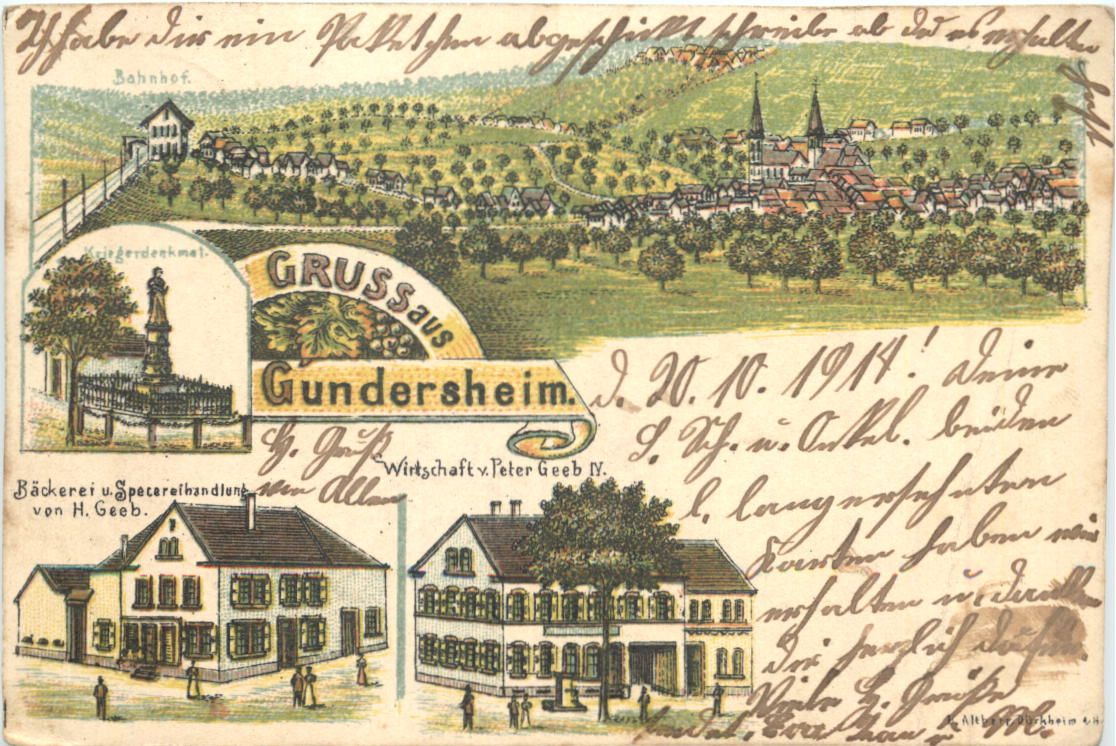 Ich habe dir ein Paketchen abgeschickt schreibe ob du es erhalten
hast
Bahnhof.
Kriegerdenkmal.
GRUSS aus
Gundersheim.
d. 20. 10. 1914! Deine
l. Sch. u. Onkel. beiden
l. langersehnten
Karten haben wir
erhalten u. danken
dir herzlich dafür.
Viele h. Grüße
sendet
H. Gruß
von Allen
Wirtschaft v. Peter Geeb IV.
Bäckerei u. Specereihandlung
von H. Geeb.
L. Altberg, Dürkheim a/H.